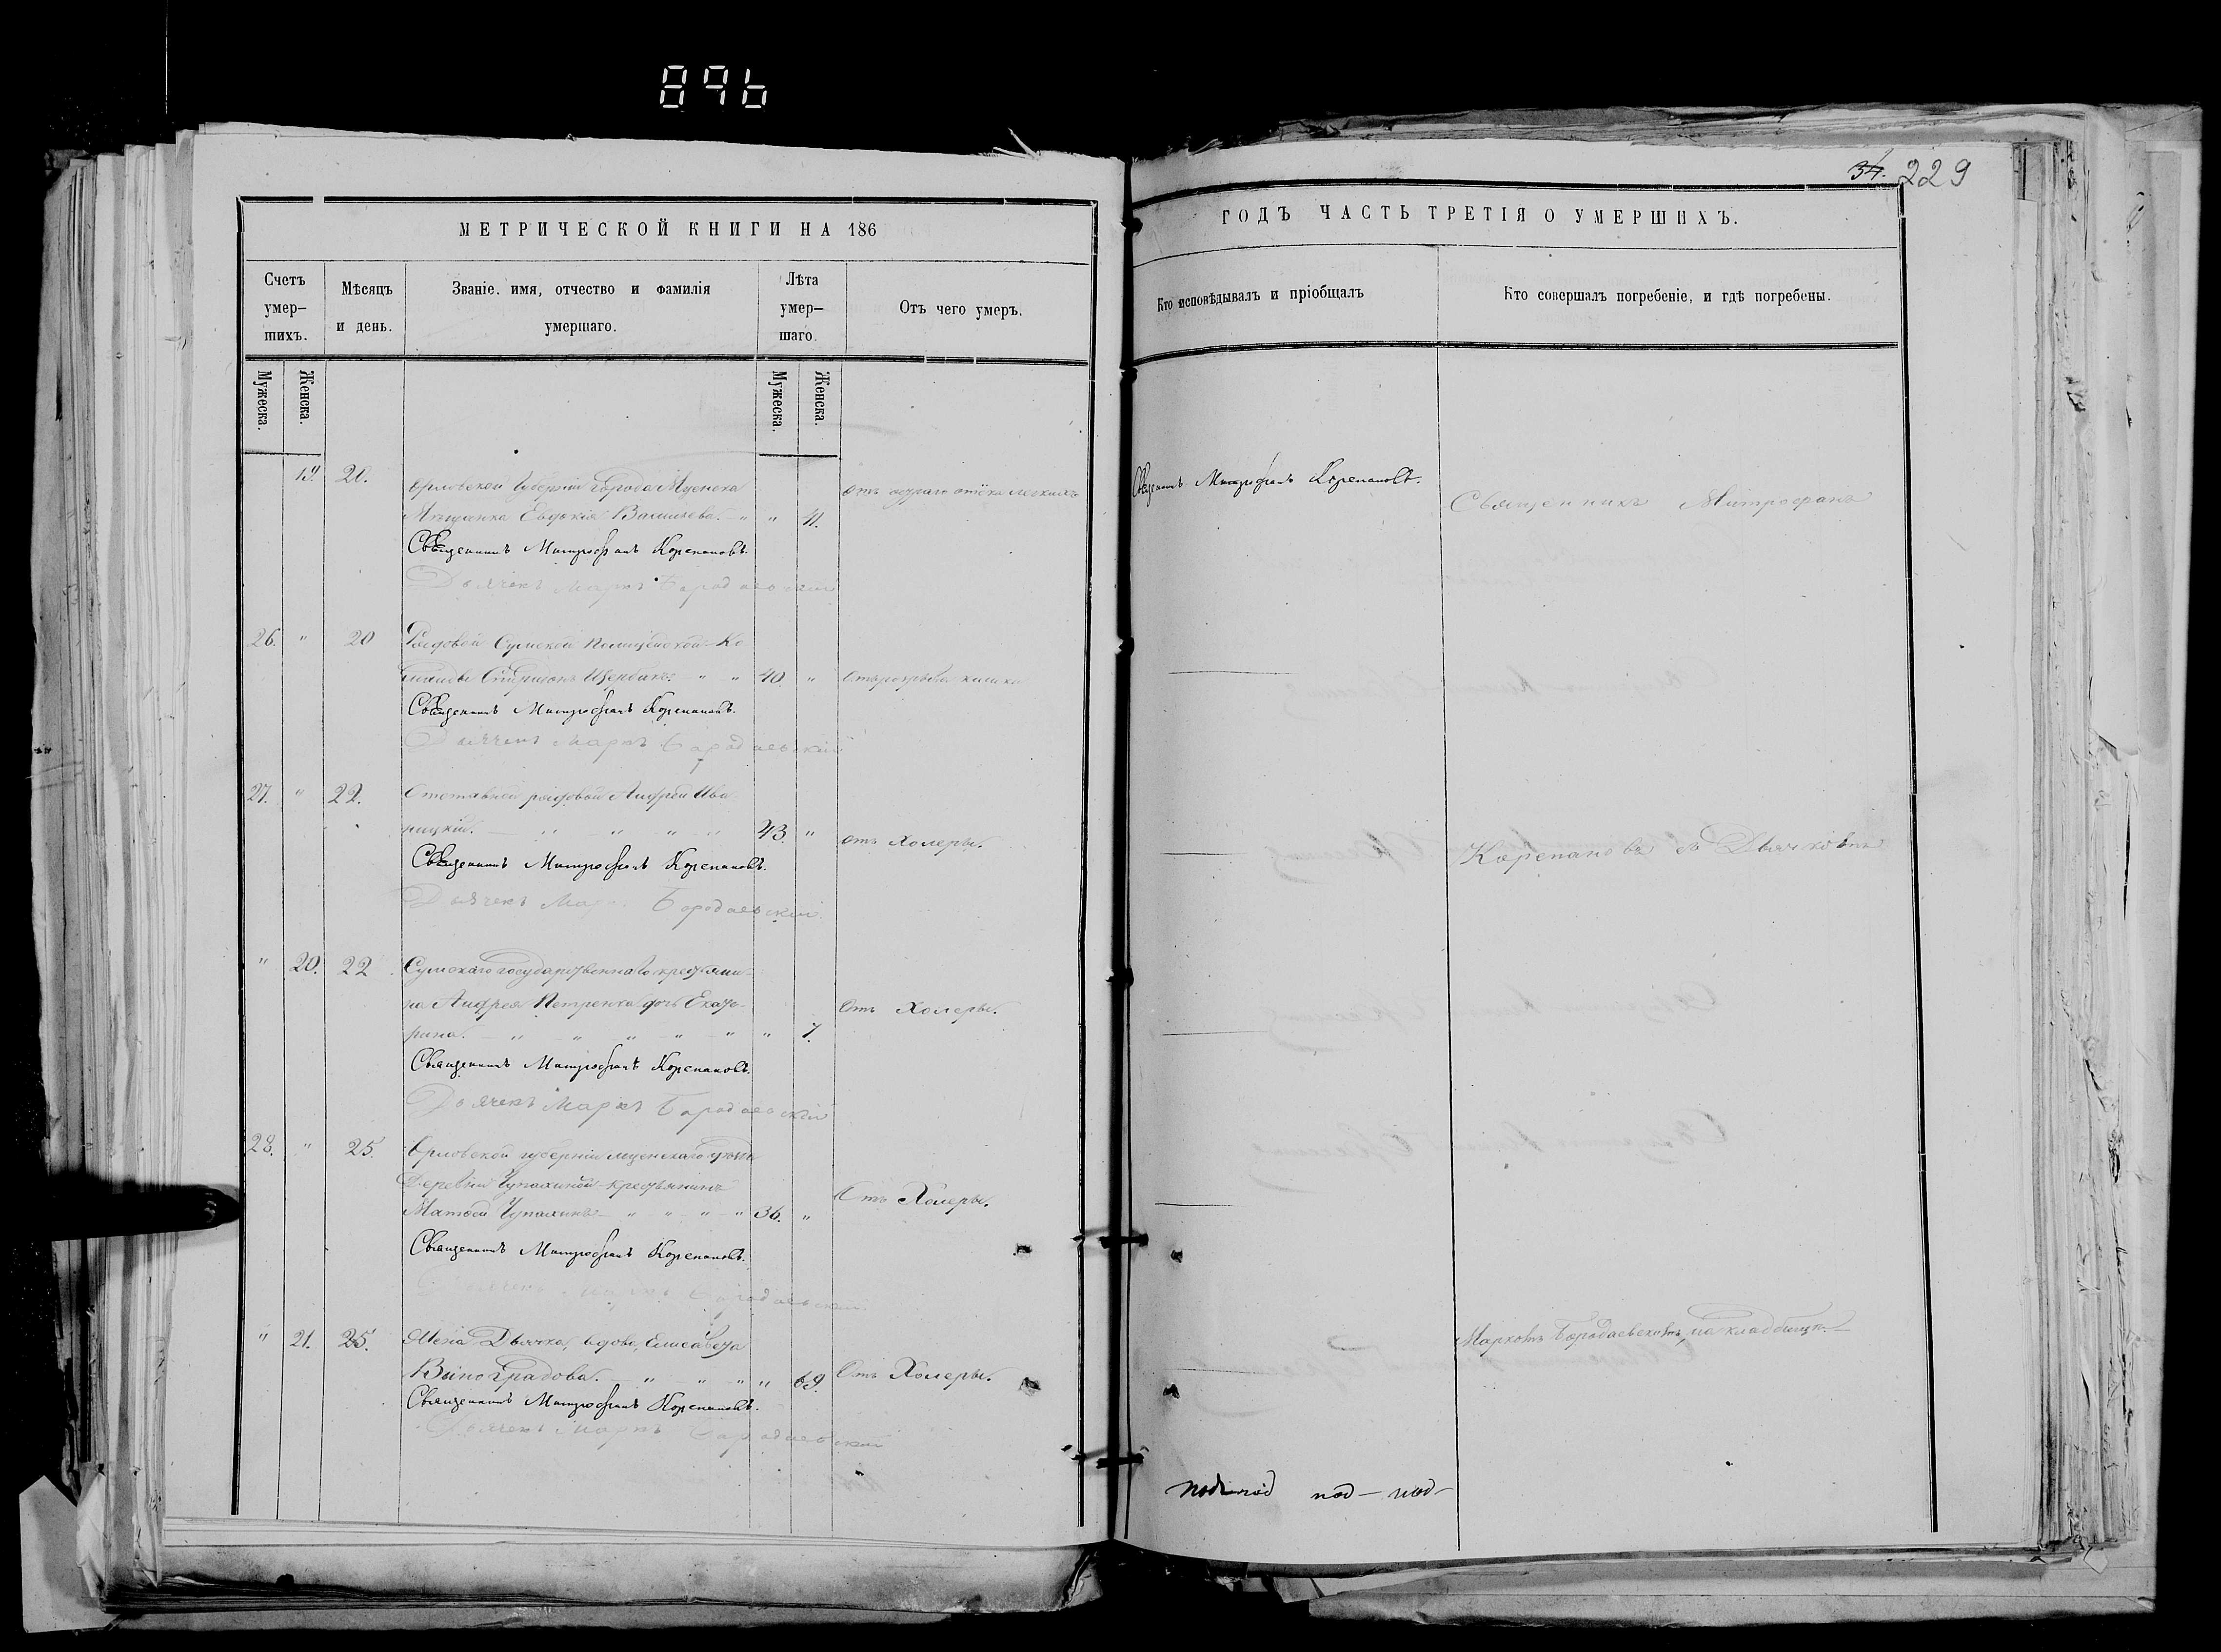 896
МЕТРИЧЕСКОЙ КНИГИ НА 186
Счетъ умер-шихъ.
Мѣсяцъ и день.
Званіе, имя, отчество и фамилія умершаго.
Лѣта умер-шаго.
Отъ чего умеръ.
Мужеска.
Женска.
Мужеска.
Женска.
19. 20. Орловской Губерніи города Мценска
отъ остраго отёка легкихъ
Мѣщанка Евдокія " " 41.
Священникъ Митрофанъ Корепановъ.
Дьячекъ Маркъ Бородаевскій
26. " 20 Рядовой Сумской Полицейской Ко-
манды Спиридонъ Щербакъ " " 40. "
Священникъ Митрофанъ Корепановъ.
Дьячекъ Маркъ Бородаевскій
27. " 22. Отставной рядовой Андрей Ива-
ницкій. " " " " 43. " отъ Холеры.
Священникъ Митрофанъ Корепановъ.
Дьячекъ Марк Бородаевскій
" 20. 22 Сумскаго государственнаго крестьяни-
на Андрея Петренка дочь Екате-
Отъ Холеры.
рина. " " " " " " 7.
Священникъ Митрофанъ Корепановъ.
Дьячекъ Маркъ Бородаевскій
28. " 25. Орловской губерніи Мценскаго уѣзда
Деревни Чупахиной крестьянинъ
Отъ Холеры.
Матвей Чупахинъ " " " " 36. "
Священникъ Митрофанъ Корепановъ.
Дьячекъ Маркъ Бородаевскій
" 21. 25. Жена Дьячка, вдова, Елисавета
Виноградова. " " " " 69. Отъ Холеры.
Священникъ Митрофанъ Корепановъ.
Дьячекъ Маркъ Бородаевскій
34. 229
ГОДЪ ЧАСТЬ ТРЕТІЯ О УМЕРШИХЪ.
Кто исповѣдывалъ и пріобщалъ
Кто совершалъ погребеніе, и гдѣ погребены.
Священникъ Митрофанъ Корепановъ.
Священникъ Митрофанъ
Корепановъ съ Дьячкомъ
Маркомъ Бородаевскимъ, на кладбищѣ.